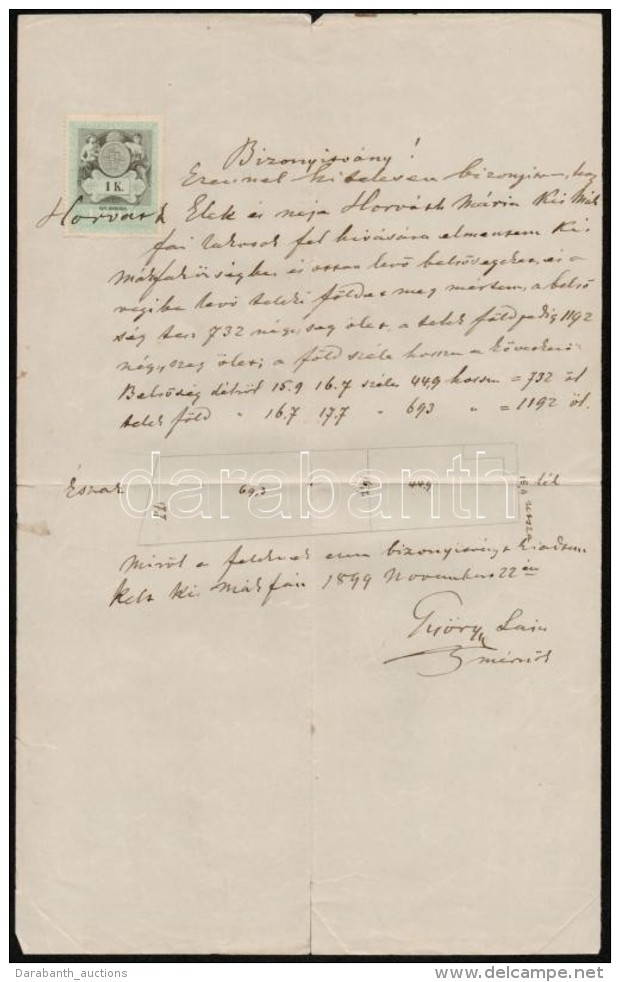 Bizonyisvány!
Ezennel hitelesen bizonyitom, hogy
1 K.
Horváth Elek és neje Horváth Mária Kis Mák
fai lakosok fel hivására elmentem Kis
Mákfa községbe és ottan levő belsőségeket, és a
végibe levő teleki földet meg mértem, a belső
ség tesz 732 négyszeg ölet, a telek föld pedig 1192
négyszeg ölet; a föld széle hossza a következő
Belsőség délről 15.9 16.7 széles 44.9 hossza = 732 öl
telek föld " 16.7 17.7 " 69.3 " = 1192 öl.
Észak 17.7 69.3 16.7 44.9 15.9 utcza dél
darabanth
Miről a feleknek ezen bizonyitványt kiadtam
Kelt Kis Mákfán 1899 November 22én
Győry Lajos
mérnök
Darabanth_auctions
delcampe.net